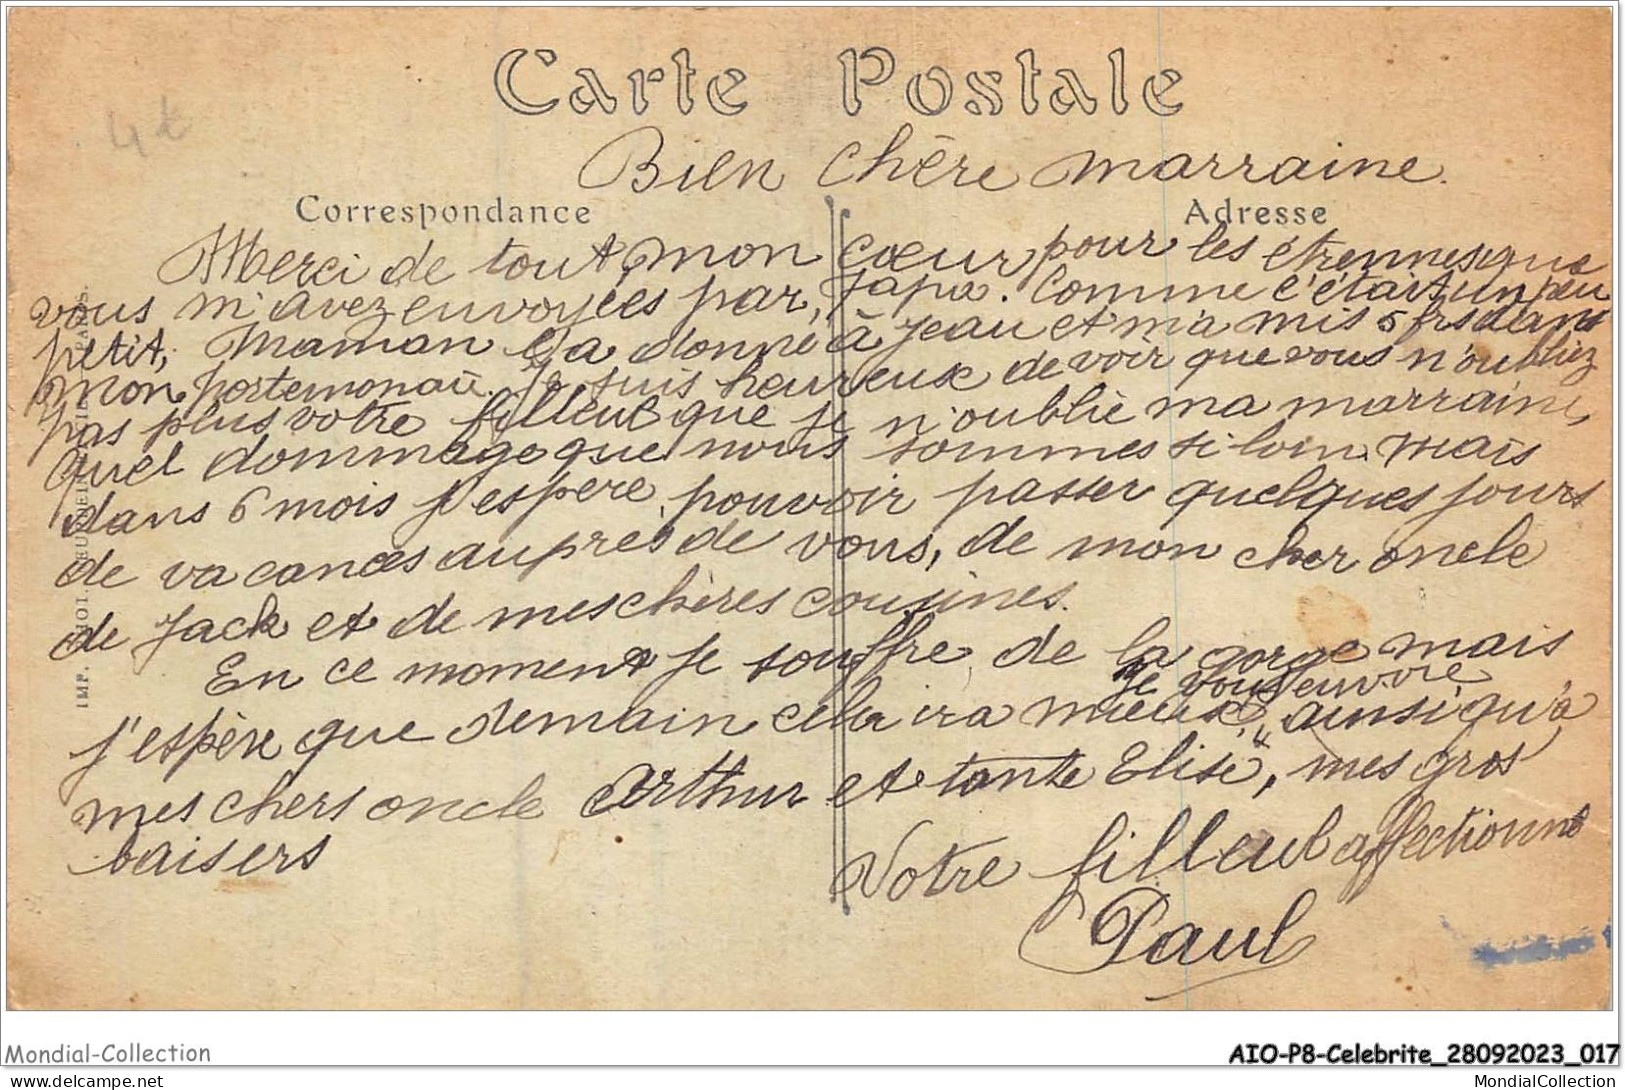 4 €
Carte Postale
Bien chère marraine.
Correspondance
Adresse
Merci de tout mon cœur pour les étrennes que
vous m'avez envoyées par Papa. Comme c'était un peu
petit, Maman l'a donné à Jean et m'a mis 5 frs dans
mon portemonaie. Je suis heureux de voir que vous n'oubliez
pas plus votre filleul que je n'oublie ma marraine,
quel dommage que nous sommes si loin. Mais
dans 6 mois j'espère pouvoir passer quelques jours
de vacances auprès de vous, de mon cher oncle
de Jack et de mes chères cousines.
En ce moment je souffre de la gorge mais
j'espère que demain cela ira mieux, je vous envoie ainsi qu'à
mes chers oncle Arthur et "tante Elise", mes gros
baisers
Votre filleul affectionné
Paul
IMP. PARIS.
Mondial-Collection
AIO-P8-Celebrite_28092023_017
delcampe.net
MondialCollection